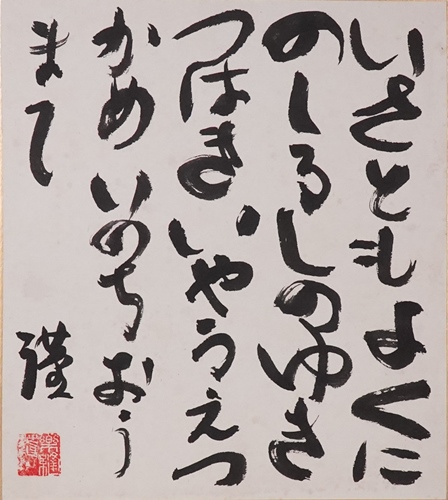 いさともよくに
のしるしのゆき
つはきいやうえつ
かめいのちおう
まて
謹